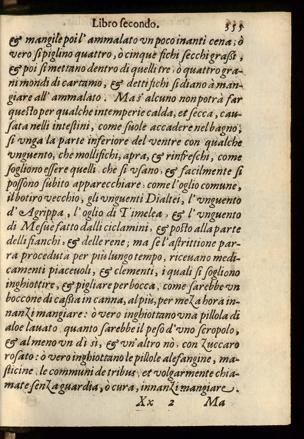 Libro secondo. 353
& mangile poi l'ammalato vn poco inanti cena; ò
vero si piglino quattro, ò cinque fichi secchi grassi,
& poi si mettano dentro di quelli tre, ò quattro gra-
ni mondi di cartamo, & detti fichi si diano à man-
giare all'ammalato. Ma s'alcuno non potrà far
questo per qualche intemperie calda, et secca, cau-
sata nelli intestini, come suole accadere nel bagno;
si vnga la parte inferiore del ventre con qualche
vnguento, che mollifichi, apra, & rinfreschi, come
sogliono essere quelli, che si vsano, & facilmente si
possono subito apparecchiare, come l'oglio comune,
il botiro vecchio, gli vnguenti Dialtei, l'vnguento
d'Agrippa, l'oglio di Timelea, & l'vnguento
di Mesuè fatto dalli ciclamini, & posto alla parte
delli fianchi, & delle rene; ma se l'astrittione par-
ra proceduta per più lungo tempo, riceuano medi-
camenti piaceuoli, & clementi, i quali si sogliono
inghiottire, & pigliare per bocca, come sarebbe vn
boccone di cassia in canna, al più, per meza hora in-
nanzi mangiare: ò vero inghiottano vna pillola di
aloe lauato, quanto sarebbe il peso d'vno scropolo,
& almeno vn dì sì, & vn'altro nò, con zuccaro
rosato: ò vero inghiottano le pillole alefangine, ma-
sticine, le communi de tribus, et volgarmente chia-
mate senza guardia, ò cura, innanzi mangiare.
Xx 2 Ma